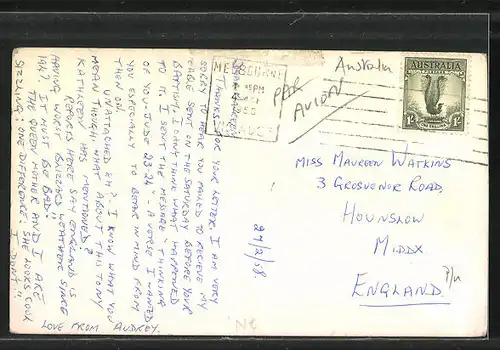 THANKS FOR YOUR LETTER. I AM VERY
SORRY TO HEAR YOU FAILED TO RECEIVE MY
CABLE SENT IN THE SATURDAY BEFORE YOUR
BIRTHDAY. I CAN'T THINK WHAT HAPPENED
TO IT. I SENT THE MESSAGE "THINKING
OF YOU-JUDE 23-24 - A VERSE I WANTED
YOU ESPECIALLY TO BEAR IN MIND FROM
THEN ON.
UNATTACHED EH? I KNOW WHAT YOU
MEAN THOUGH. WHAT ABOUT THIS TONY
KATHLEEN HAS MENTIONED?
REPORTS HERE SAY ENGLAND IS
HAVING WORST WEATHER SINCE
1947. IT MUST BE BAD!!
THE QUEEN MOTHER AND I ARE
SIZZLING! ONE DIFFERENCE: SHE LOOKS COOL
I DON'T!!
LOVE FROM AUDREY.
24/2/58.
MELBOURNE
PAR
AVION
Australia
AUSTRALIA
POSTAGE
1/-
1/-
MISS MAUREEN WATKINS
3 GROSVENOR ROAD,
HOUNSLOW
MIDDX
ENGLAND